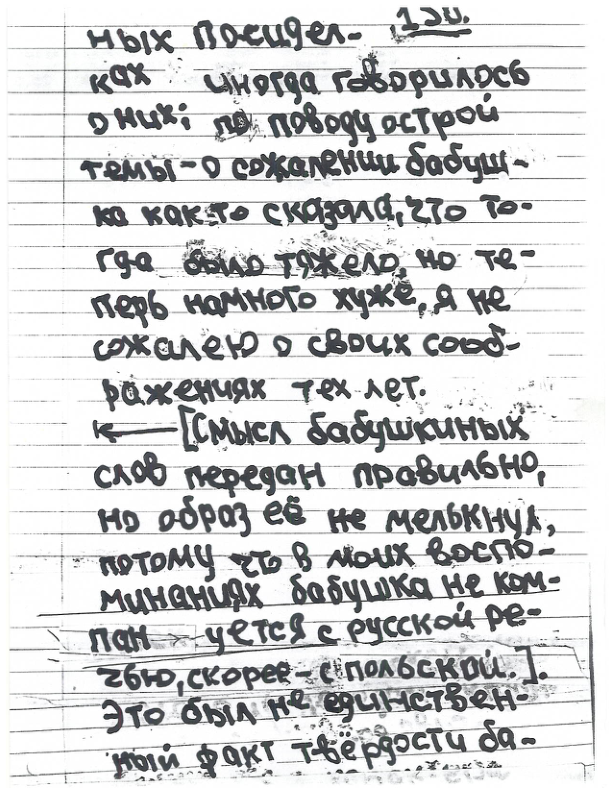 130.
ных посидел-
ках иногда говорилось
о них; по поводу острой
темы - о сожалении бабуш-
ка как-то сказала, что то-
гда было тяжело, но те-
перь намного хуже, я не
сожалею о своих сооб-
ражениях тех лет.
← [Смысл бабушкиных
слов передан правильно,
но образ её не мелькнул,
потому что в моих воспо-
минаниях бабушка не ком-
пан → уется с русской ре-
чью, скорее - с польской.].
Это был не единствен-
ный факт твёрдости ба-